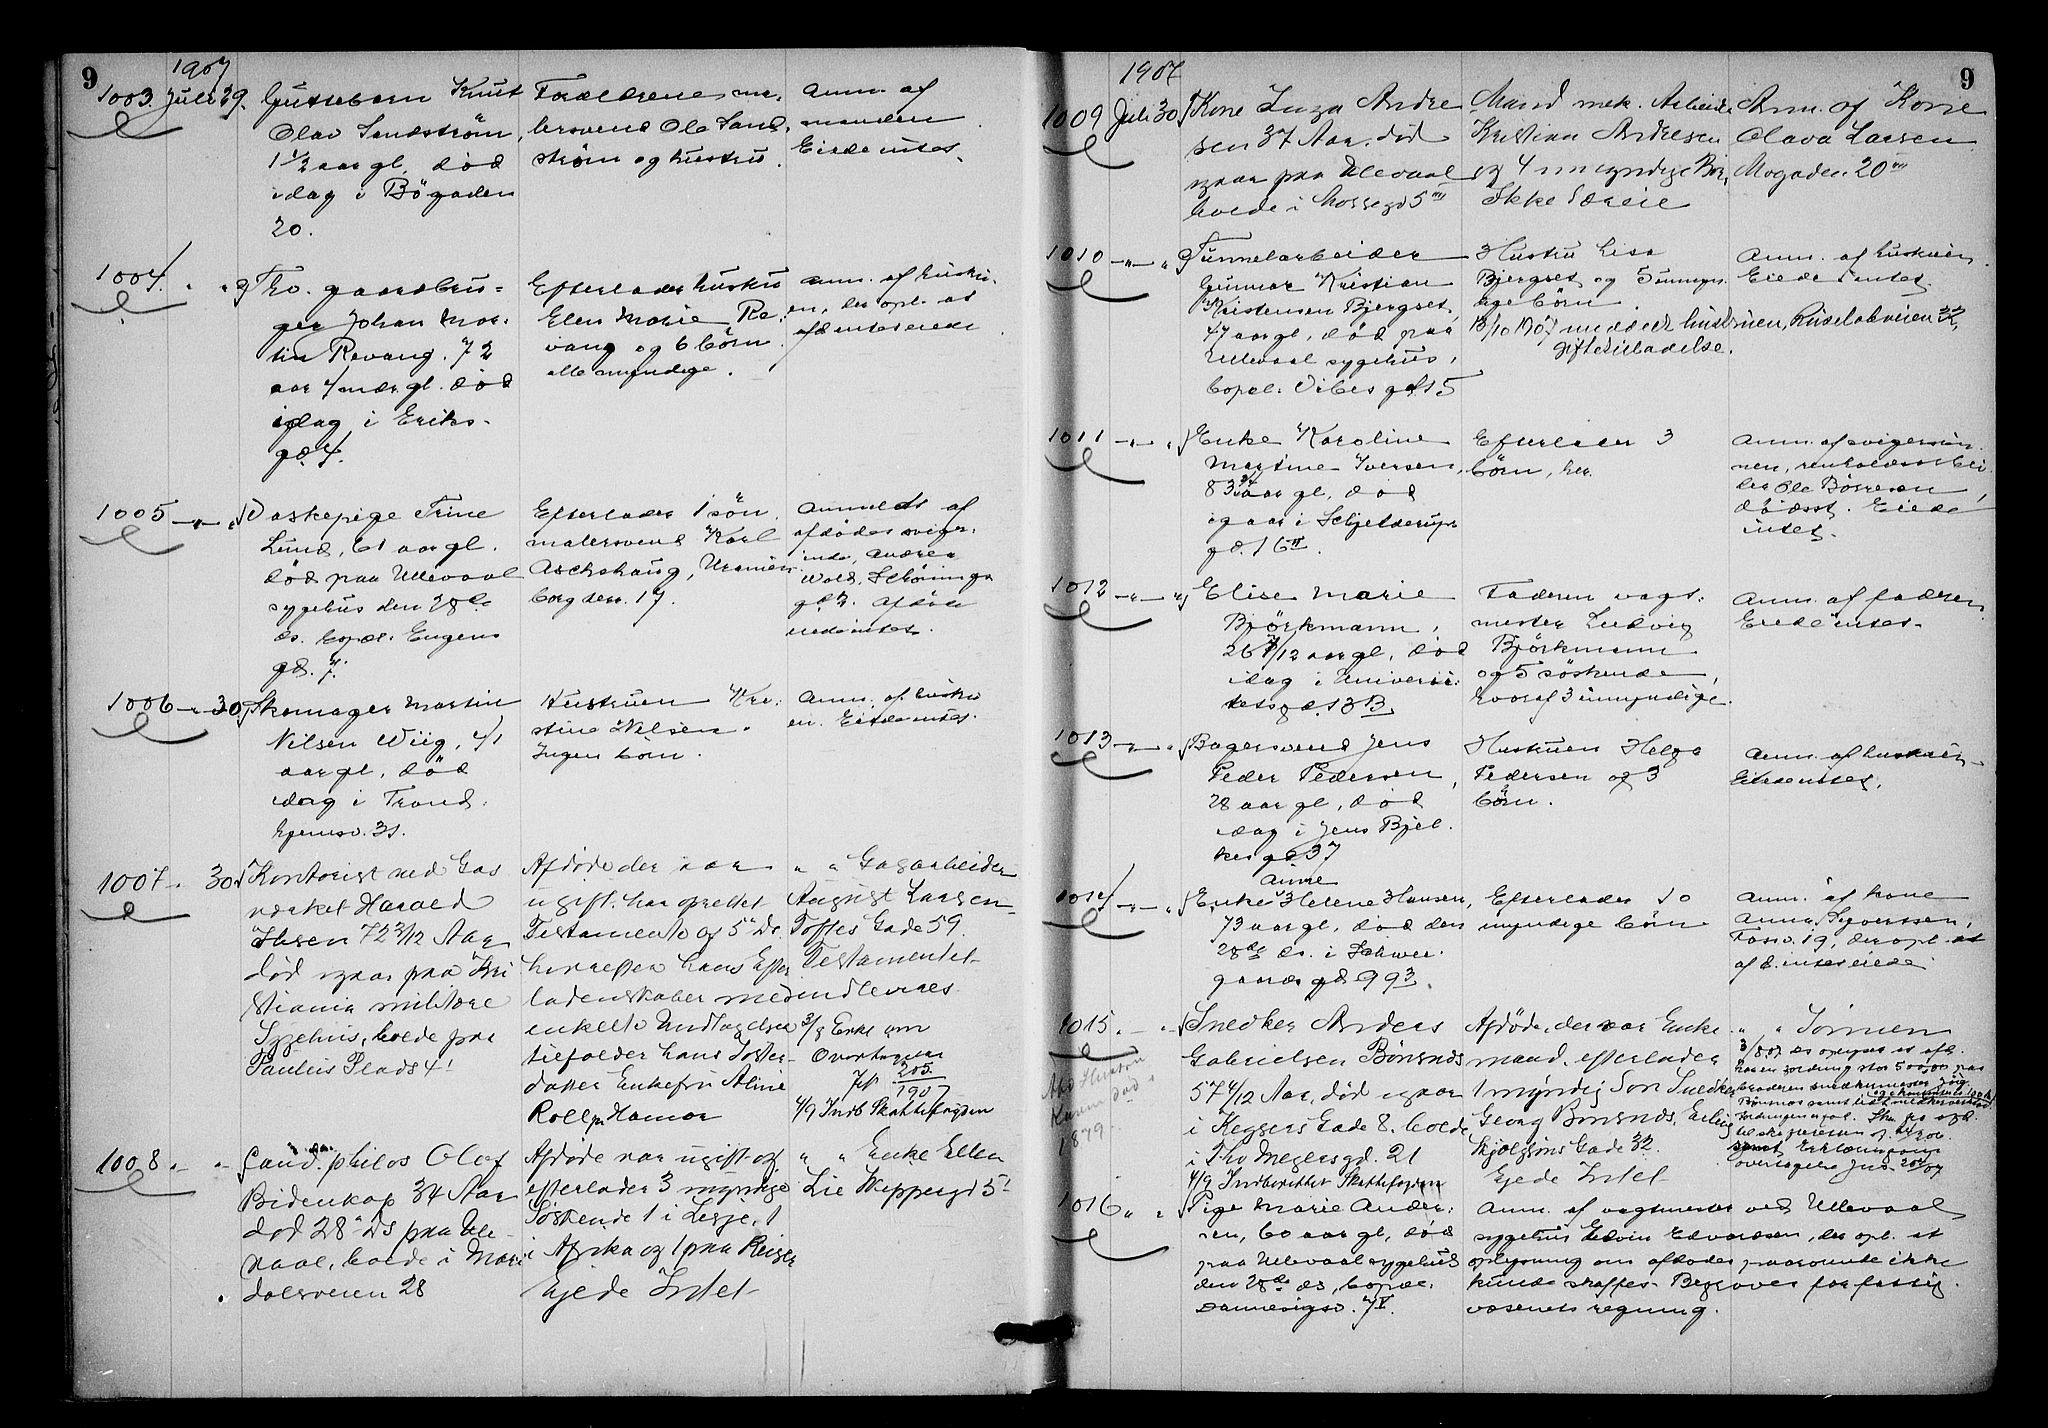 9
1907
1003. Juli 29.
Guttebarn Knut
Olav Sandström,
1 1/2 aar gl. död
idag i Bögaden
20.
Forældrene ma-
lersvend Ole Sand-
ström og hustru.
Anm. af
manden
Eiede intet.
1004.
Fhv. gaardbru-
ger Johan Mar-
tin Revang. 72
aar 4 mdr gl. död
idag i Eriks-
gd. 4.
Efterlader hustru
Elen Marie Re-
vang og 6 börn
alle myndige.
Anm. af hustru-
en, der opl. at
afd intet eiede
1005
Vaskepige Trine
Lund, 61 aar gl.
död paa Ullevaal
sygehus den 28de
ds. bopæl: Eugens
gd. 7.
Efterlader 1 sön
malersvend Karl
Aschehaug, Uranien-
borg terr. 17.
Anmeldt af
afdödes sviger-
inde, Andrea
Wold, Schönings
gd. Afdöde
eiede intet.
1006 30
Skomager Martin
Nilsen Wiig, 41
aar gl. död
idag i Trond-
hjemsv. 31.
Hustruen Kri-
stine Nilsen.
Ingen börn.
Anm. af hustru
en. Eiede intet.
1007 30
Kontorist ved Gas
værket Harald
Ibsen 72 3/12 Aar
död igaar paa Kri
stiania militære
Sygehus, boede paa
Paulus Plads 4 I
Afdöde der var
ugift har oprettet
Testamente af 5te Ds
hvorefter hans Efter
ladenskaber med
enkelte Undtagelser
tilfalder hans Söster-
datter Enkefru Aline
Roll f. Hamar
" " Gasarbeider
August Larsen
Toftes Gade 59.
Testamentet
indleveres
3/8 Erkl om
Overtagelse
Jr 205/1907
4/9 Indb Skattefogden
1008
Cand. philos Olaf
Bidenkap 34 Aar
död 28de Ds paa Ulle-
vaal, boede i Mari
dalsveien 28
Afdöde var ugift og
efterlader 3 myndige
Söskende 1 i Lesje, 1
i Afrika og 1 paa Reiser
Ejede Intet
" " Enke Ellen
Lie Weppersgd 5 I
1907
9
1009 Juli 30
Kone Inga Andre
sen 37 Aar. död
igaar paa Ulevaal
boede i Mossegd 5 III
Mand mek. Arbeider
Kristian Andresen
og 4 umyndige Börn
Ikke Særeie
Anm. af Kone
Olava Larsen
Mogaden 20 III
1010
Tunnelarbeider
Gunnar Kristian
Kristensen Bjergset,
47 aar gl, död paa
Ullevaal sygehus,
bopæl: Vibes gd. 15
Hustru Lisa
Bjergset og 5 umyn-
dige börn
18/10 1907 meddelt hustruen, Ruselökveien 32,
giftetilladelse.
Anm. af hustruen
Eiede intet.
1011
Enke Karoline
Martine Iversen,
83 aar gl, död
igaar i Schjelderups
gd. 16 II.
Efterlader 3
börn, her
Anm. af svigersön-
nen, renholdsarbei-
der Ole Börresen,
do. adsst. Eiede
intet.
1012
Elise Marie
Björkmann,
26 7/12 aar gl, död
idag i Universi-
tetsgd. 13 B.
Faderen vagt-
mester Ludvig
Björkmann
og 5 söskende,
hvoraf 3 umyndige.
Anm. af faderen
Eiede intet.
1013
Bagersvend Jens
Peder Pedersen,
28 aar gl, död
idag i Jens Bjel-
kes gd. 37
Hustruen Helga
Pedersen og 3
börn.
Anm. af hustruen
Eiede intet.
1014
Anne
Enke Helene Hansen,
73 aar gl, död den
28de ds. i Schwei-
gaards gd 99 3.
Efterlader 10
myndige börn
Anm. af kone
Anna Syversen,
Fossv. 19, der opl. at
afd. intet eiede
1015
Snedker Anders
Gabrielsen Börsnds
57 4/12 Aar, död igaar
i Keysers Gade 8. boede
i Thv Meyersgd. 21
4/9 Indberettet Skattefogden
Afdöde, der var Enke
mand, efterlader
1 myndig Son Snedker
Georg Börsnds, Erling
Skjalgsöns Gade 32.
Ejede Intet
" " Sönnen
1879.
1016
Pige Marie Ander-
sen, 60 aar gl, död
paa Ullevaal sygehus
den 28de ds, bopæl:
Dannevigsv. 7 V.
Anm. af vagtmester ved Ullevaal
sygehus Edvin Edvardsen, der opl. at
oplysning om afdödes paarörende ikke
kunde skaffes. Begraves for fattig-
væsenets regning.